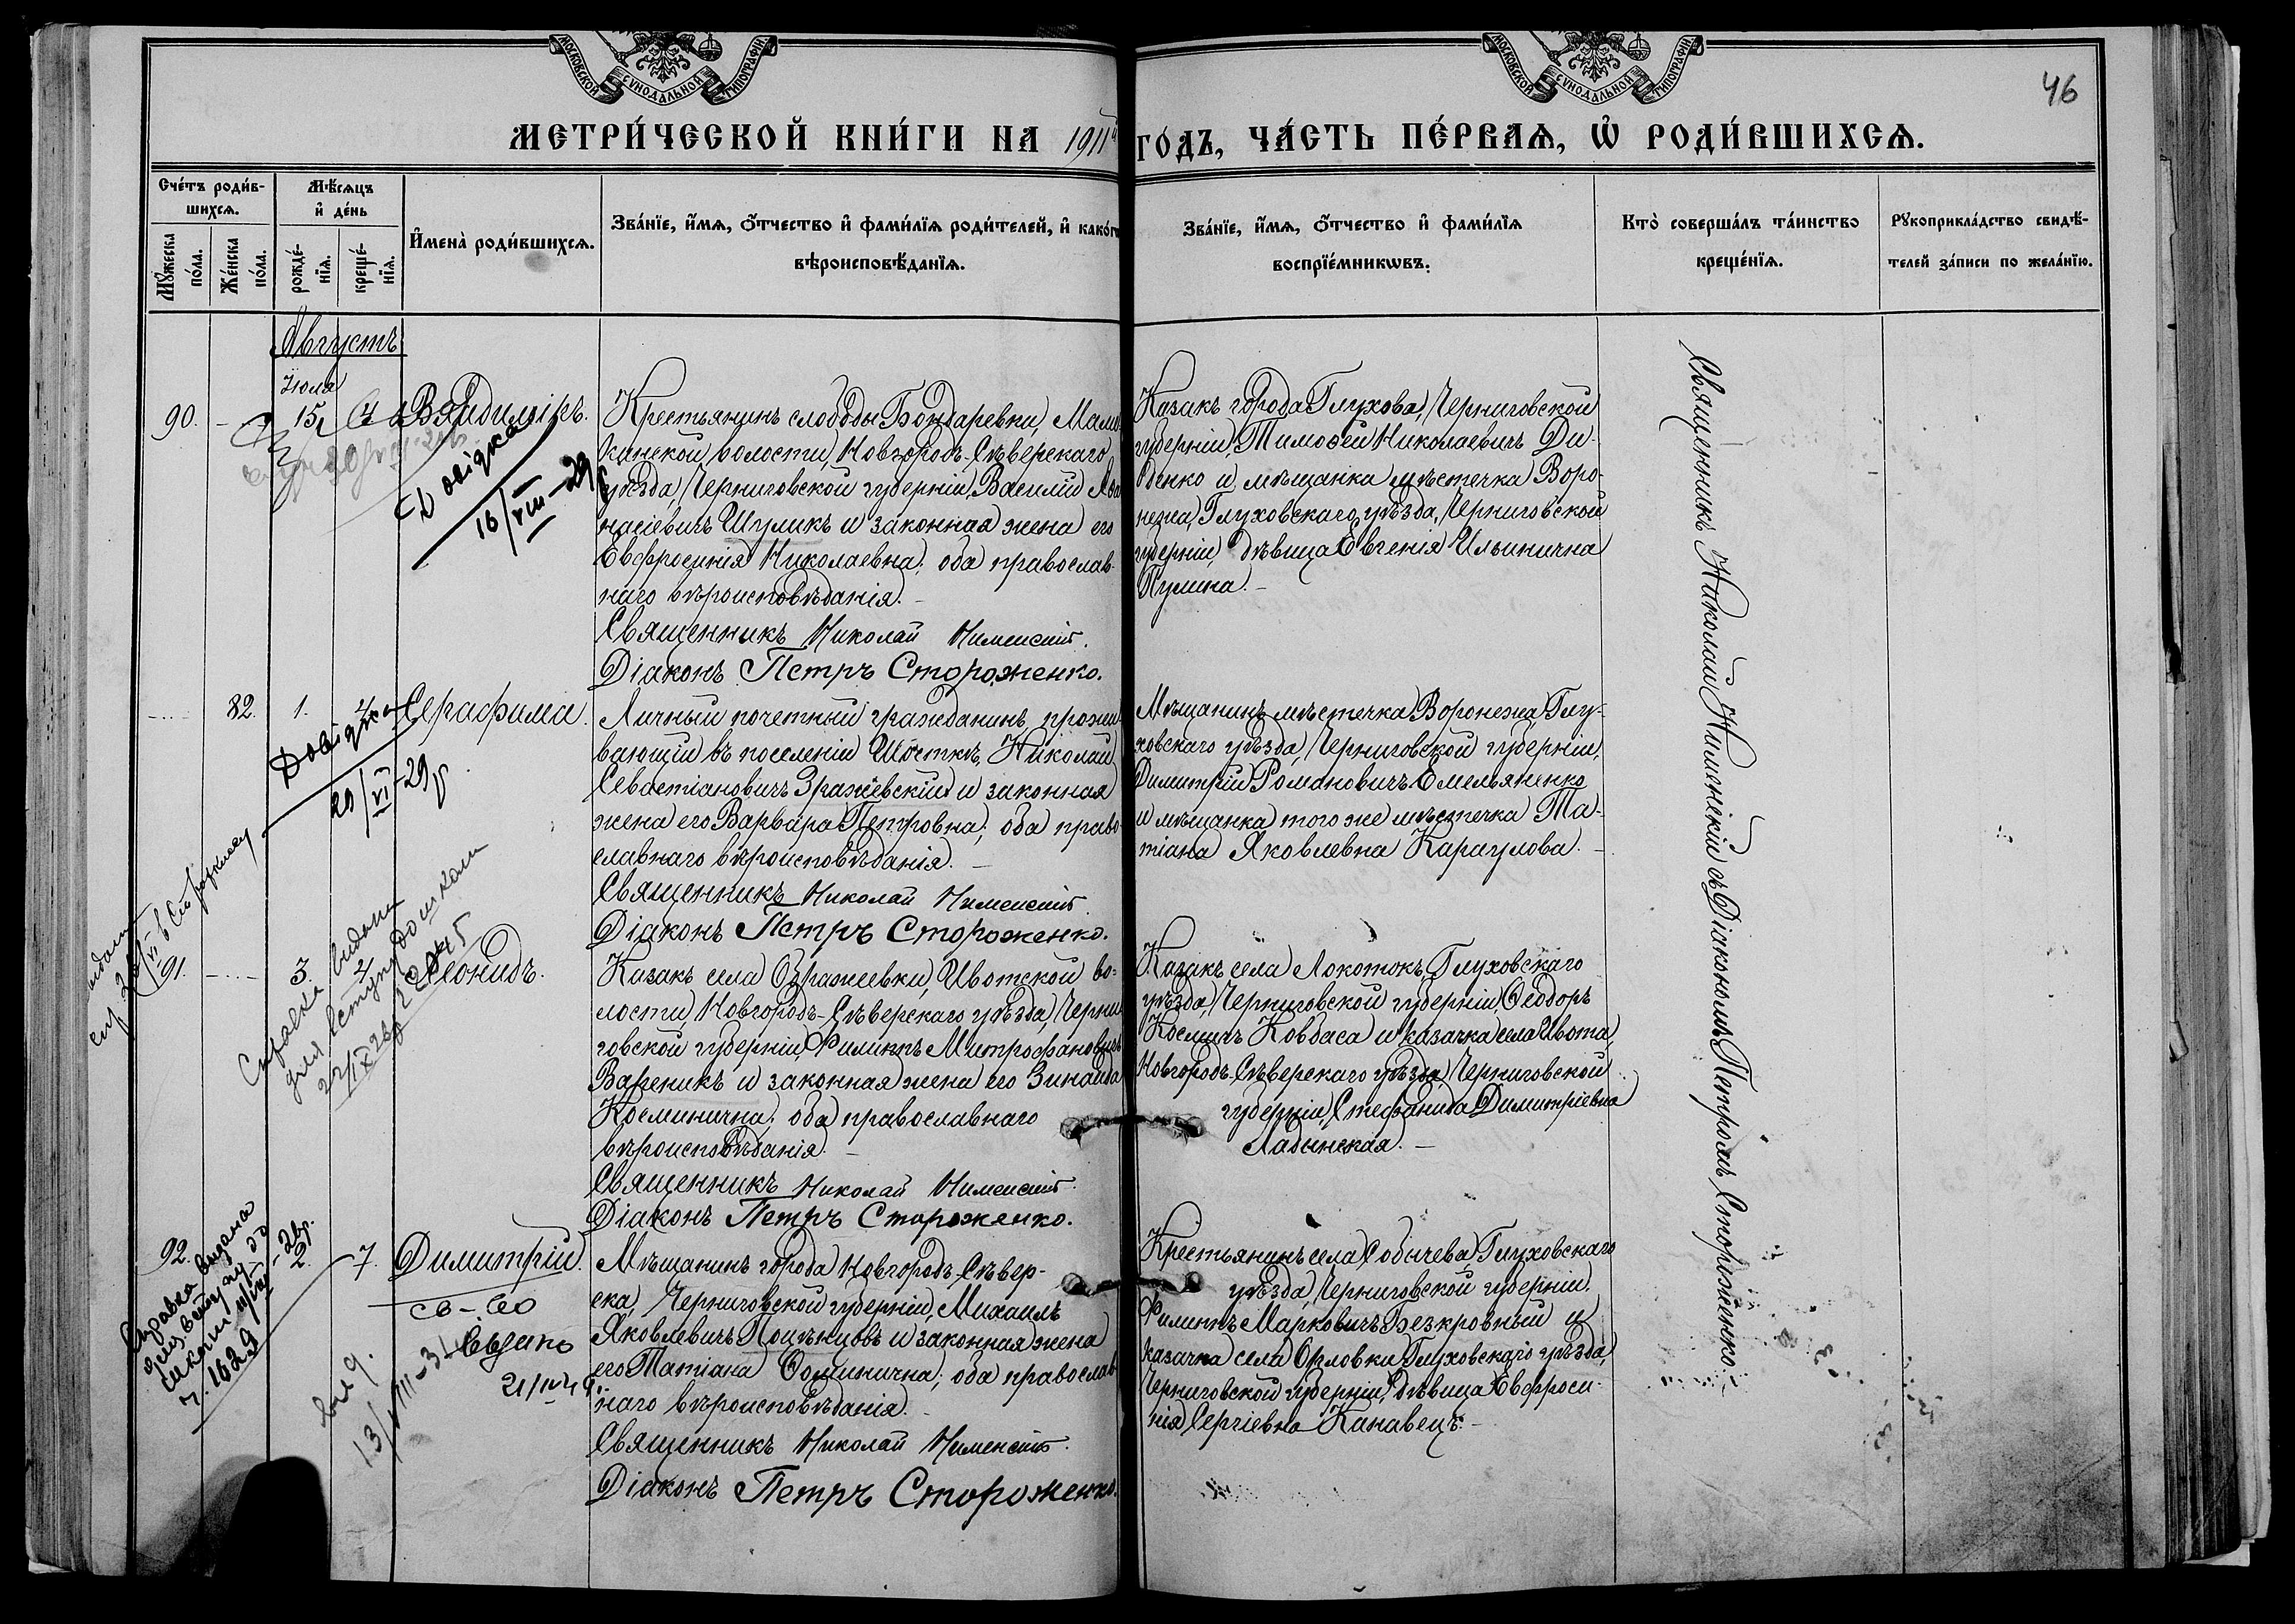 МОСКОВСКОЙ СѴНОДАЛЬНОЙ ТИПОГРАФІИ
МОСКОВСКОЙ СѴНОДАЛЬНОЙ ТИПОГРАФІИ
46
МЕТРИ́ЧЕСКОЙ КНИ́ГИ НА 1911й ГО́ДЪ, ЧА́СТЬ ПЕ́РВАЯ, Ѽ РОДИ́ВШИХСЯ.
Сче́тъ роди́в-
шихся.
Мꙋ́жеска
по́ла.
Же́нска
по́ла.
Мѣ́сяцъ
и҆ де́нь
рожде́-
нїя.
креще́-
нїя.
И҆мена̀ роди́вшихся.
Зва́нїе, и҆́мя, ѻ҆́тчество и҆ фами́лїя роди́телей, и҆ како́гѡ
вѣроисповѣ́данїя.
Зва́нїе, и҆́мя, ѻ҆́тчество и҆ фами́лїя
воспрїе́мникѡвъ.
Кто̀ соверша́лъ та́инство
креще́нїя.
Рꙋкоприкла́дство свидѣ́-
телей за́писи по жела́нїю.
Августъ
Іюля
90.
15
Владиміръ.
Крестьянинъ слободы Бондаревки, Мами-
кинской волости, Новгородъ-Сѣверскаго
уѣзда, Черниговской губерніи, Василій Аѳа
насіевичъ Шуликъ и законная жена его
Евфросинія Николаевна; оба православ-
наго вѣроисповѣданія. –
Священникъ Николай Нименскій.
Діаконъ Петръ Стороженко.
Казакъ города Глухова, Черниговской
губерніи, Тимоѳей Николаевичъ Ди-
денко и мѣщанка мѣстечка Воро-
нежа, Глуховскаго уѣзда, Черниговской
губерніи, дѣвица Евгенія Ильинична
Пулина. –
Довідка
16/VIII–29р
82.
1.
4
Серафима.
Личный почетный гражданинъ, прожи-
вающій въ поселеніи Шосткѣ, Николай
Севастіановичъ Зражевскій и законная
жена его Варвара Петровна; оба право-
славнаго вѣроисповѣданія. –
Священникъ Николай Нименскій
Діаконъ Петръ Стороженко.
Мѣщанинъ мѣстечка Воронежа, Глу-
ховскаго уѣзда, Черниговской губерніи,
Димитрій Романовичъ Емельяненко
и мѣщанка того же мѣстечка Та-
тіана Яковлевна Караулова. –
Довідка
29/VI–29р
91.
3.
4
Леонидъ.
Казакъ села Ображеевки, Ивотской во-
лости, Новгородъ-Сѣверскаго уѣзда, Черни
говской губерніи, Филиппъ Митрофановичъ
Вареникъ и законная жена его Зинаида
Косминична; оба православнаго
вѣроисповѣданія. –
Священникъ Николай Нименскій
Діаконъ Петръ Стороженко.
Казакъ села Локотокъ, Глуховскаго
уѣзда, Черниговской губерніи, Ѳеодоръ
Косминъ Ковбаса и казачка села Ивота,
Новгородъ-Сѣверскаго уѣзда, Черниговской
губерніи, Стефанида Димитріевна
Ладынская. –
Справка видана
для вступу до школи
92.
2.
7.
Димитрій.
Мѣщанинъ города Новгородъ-Сѣвер-
ска, Черниговской губерніи, Михаилъ
Яковлевичъ Поцѣнцовъ и законная жена
его Татіана Ѳоминична; оба православ
наго вѣроисповѣданія. –
Священникъ Николай Нименскій.
Діаконъ Петръ Стороженко.
Крестьянинъ села Собычева, Глуховскаго
уѣзда, Черниговской губерніи,
Филиппъ Марковичъ Безкровный и
казачка села Орловки, Глуховскаго уѣзда,
Черниговской губерніи, дѣвица Евфроси-
нія Сергіевна Канавецъ. –
Справка видана
для вступу до
школи
св-во
видано
Священникъ Николай Нименскій съ Діакономъ Петромъ Стороженко.